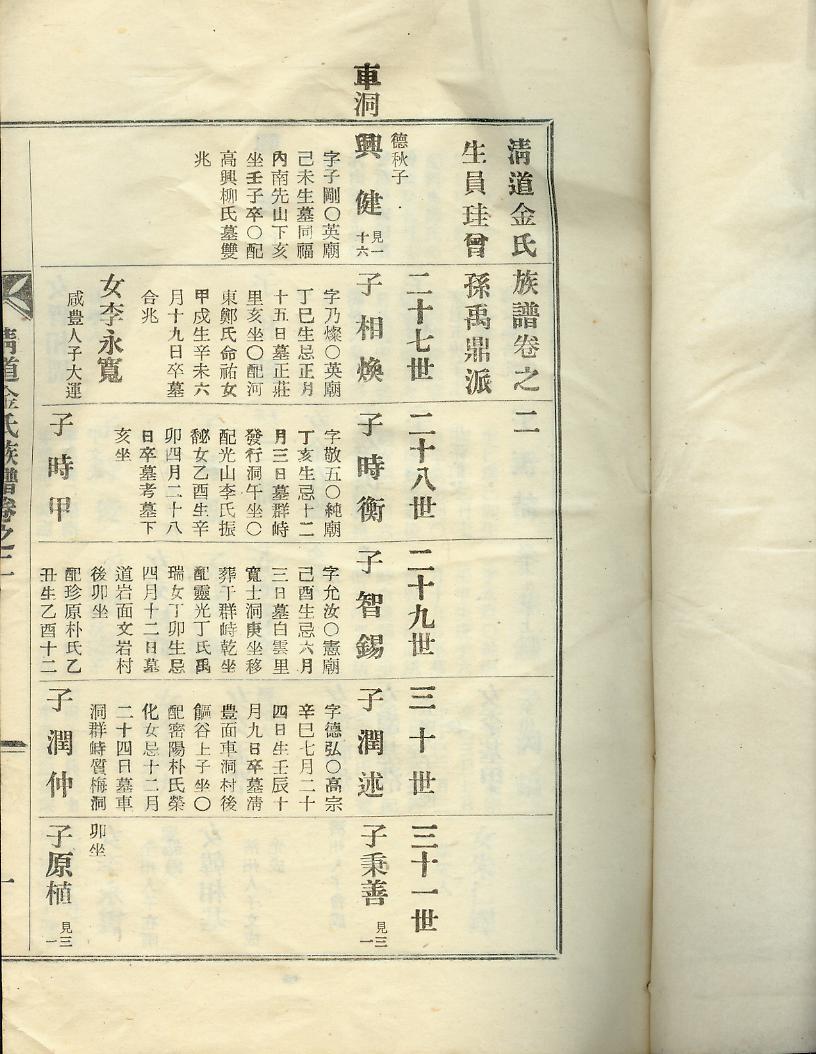 淸道金氏族譜卷之二
生員珪曾孫禹鼎派
二十七世
二十八世
二十九世
三十世
三十一世
車洞
德秋子
興健
見一
十六
字子剛○英廟
己未生墓同福
內南先山下亥
坐壬子卒○配
高興柳氏墓雙
兆
子相煥
字乃燦○英廟
丁巳生忌正月
十五日墓正莊
里亥坐○配河
東鄭氏命祐女
甲戌生辛未六
月十九日卒墓
合兆
女李永寬
咸豊人子大運
子時衡
字敬五○純廟
丁亥生忌十二
月三日墓群峙
發行洞午坐○
配光山李氏振
馝女乙酉生辛
卯四月二十八
日卒墓考墓下
亥坐
子時甲
子智錫
字允汝○憲廟
己酉生忌六月
三日墓白雲里
寬士洞庚坐移
葬于群峙乾坐
配靈光丁氏禹
瑞女丁卯生忌
四月十二日墓
道岩面文岩村
後卯坐
配珍原朴氏乙
丑生乙酉十二
子潤述
字德弘○高宗
辛巳七月二十
四日生壬辰十
月九日卒墓淸
豊面車洞村後
饇谷上子坐○
配密陽朴氏榮
化女忌十二月
二十四日墓車
洞群峙質梅洞
子潤仲
子秉善
見三
一
卯坐
子原植
見三
一
淸道金氏族譜卷之二
一